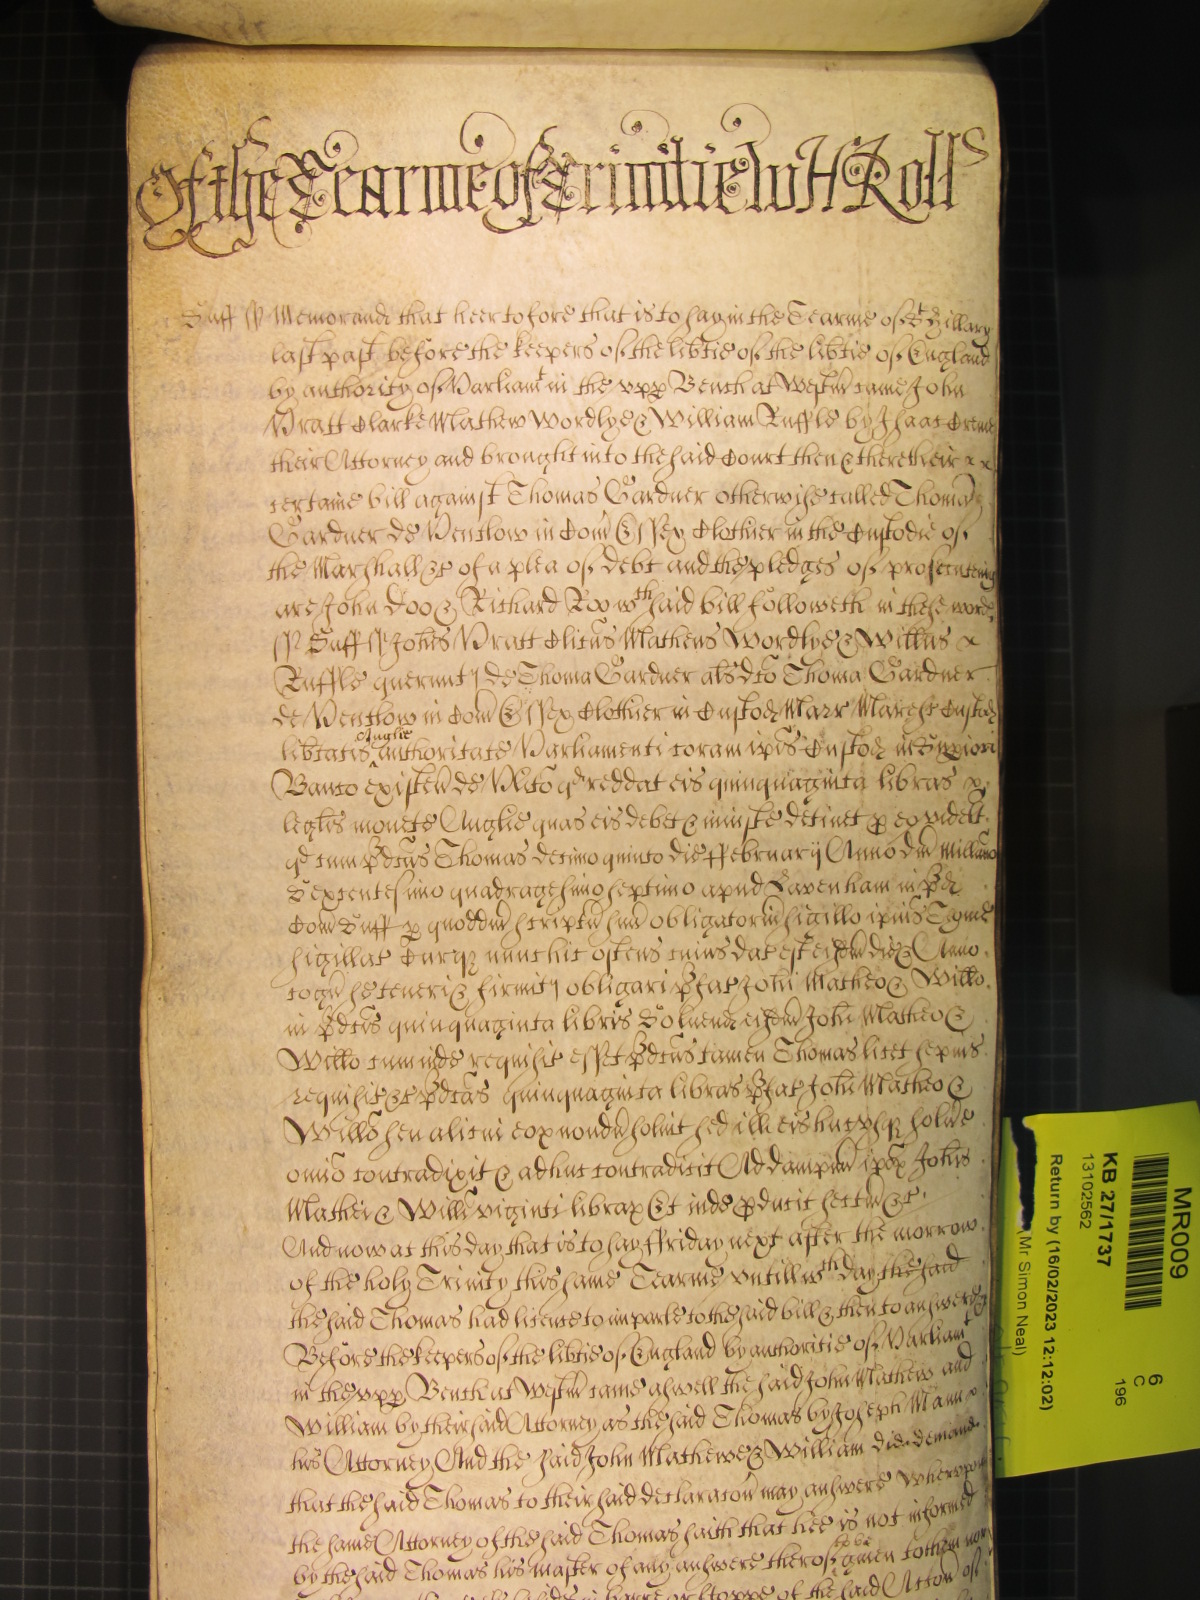 Of the Tearme of Trinitie In H Roll
Suff ss Memorand that heertofore that is to say in the Tearme of St Hillary
last past before the keepers of the libtie of the libtie of England
by authority of Parliamt in the upp Bench at Westm came John
Pratt Clarke Mathew Wordlye & William Ruffle by Isaac
their Attorney and brought into the said Court then & there their
certaine bill against Thomas Gardner otherwise called Thomas
Gardner de Pentlow in Com Essex Clothier in the Custodie of
the Marshall &c of a plea of debt and the pledges of prosecuteing
are John Doo & Richard Roo wch said bill followeth in these words
ss Suff ss Johes Pratt Clicus Matheus Wordlye & Willus
Ruffle querunt de Thoma Gardner als dco Thoma Gardner
de Pentlow in Com Essex Clothier in Custod Marr Maresc Custod
libtatis Anglie authoritate Parliamenti coram ipis Custod in Supiori
Banco existen de plito qd reddat eis quinquaginta libras
leglis monete Anglie quas eis debet & iniuste detinet p eo videlt
qd cum pdcus Thomas decimo quinto die ffebruarij Anno Dni Millimo
Sexcentesimo quadragesimo septimo apud Lavenham in pd
Com Suff p quoddm scriptu suu obligatoriu sigillo ipius Thome
sigillat Curq nunc hic ostens cuius dat est eisdm die & Anno
cogn se teneri & firmit obligari pfat Johi Matheo & Willo
in pdcis quinquaginta libris Solvend eisdm Johi Matheo &
Willo cum inde requisit esset pdcus tamen Thomas licet sepius
requisit &c pdcas quinquaginta libras pfat Johi Matheo &
Willo seu alicui eor nondu solvit sed ill eis hucusq solve
omio contradixit & adhuc contradicit Ad dampnu ipor Johis
Mathei & Willi viginti librar Et inde pducit sectm &c
And now at this day that is to say ffriday next after the morrow
of the holy Trinity this same Tearme untill wch day the said
the said Thomas had licence to imparle to the said bill & then to answere &c
Before the keepers of the libtie of England by authoritie of Parliamt
in the upp Bench at Westm came aswell the said John Mathew and
William by their said Attorney as the said Thomas by Joseph Mann
his Attorney And the said John Mathewe & William did demand
that the said Thomas to their said declaracon may answere Wherupon
the same Attorney of the said Thomas saith that hee is not informed
by the said Thomas his master of any answere therof to be given to them nor
of the said Accon of
MR009
6
C
196
KB 27/1737
13102562
Return by (16/02/2023 12:12:02)
(Mr Simon Neal)